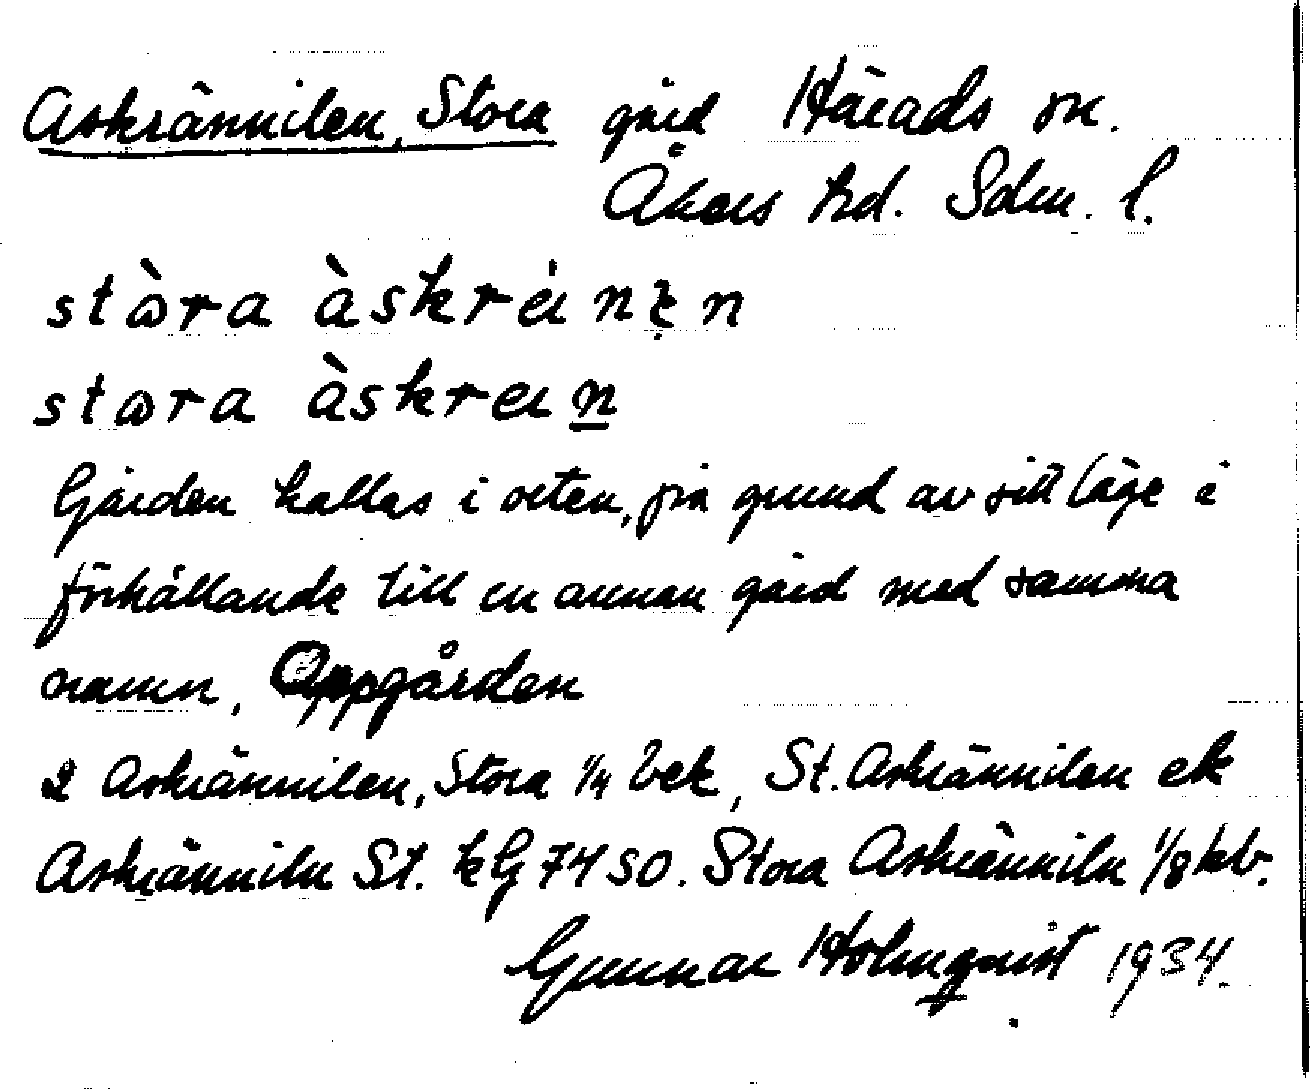 Askrännilen, Stora gård Härads sn.
Åkers hd. Sdm. l.
stò̀ra àskrèinen
stora àskrein
Gården kallas i orten, på grund av sitt läge i
förhållande till en annan gård med samma
namn, Oppgården
2 Askrännilen, Stora 1/4 bek, St. Askrännilen ek
Askränniln St. kG 74 SO. Stora Askränniln 1/8 hb.
Gunnar Holmqvist 1934.